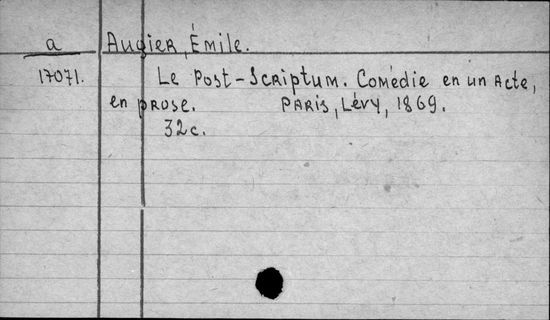 a Augier, Émile.
17071. Le Post-Scriptum. Comédie en un acte,
en prose. Paris, Lévy, 1869.
32c.